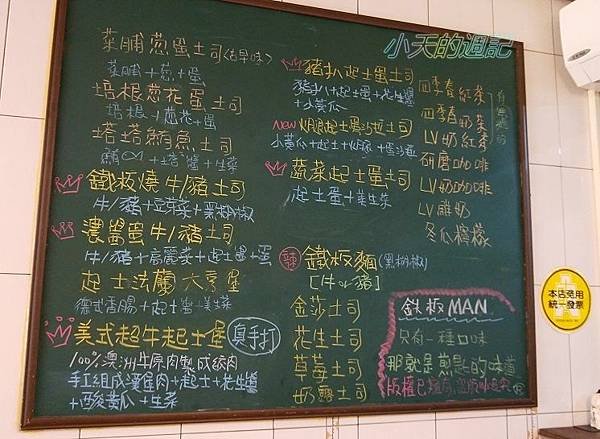 小天的週記
菜脯蔥蛋土司(古早味)
菜脯+蔥+蛋
培根蔥花蛋土司
培根+蔥花+蛋
塔塔鮪魚土司
鐵板燒牛/豬土司
牛/豬+豆芽菜+黑椒
濃醬蛋牛/豬土司
牛/豬+高麗菜+起士+蛋
起士法蘭大亨堡
德式香腸+起士
美式起牛起士堡
真手打
100%澳洲牛原肉製成絞肉
手工組成漢堡肉+起士+花生醬
+酸黃瓜+生菜
豬扒起士蛋土司
豬扒+起士+蛋+花生醬
+小黃瓜
New
起士蛋沙拉土司
小黃瓜+起士
蔬菜起士蛋司
起士蛋+美生菜
辣
鐵板麵(黑椒)
[牛or豬]
金莎土司
花生土司
草莓土司
奶露土司
四季春紅茶
四季春奶茶
LV奶紅茶
研磨咖啡
LV奶咖啡
LV鮮奶
冬瓜檸檬
鉄板MAN
只有一種口味
那就是煎匙的味道
版權已
本店免用
統一發票